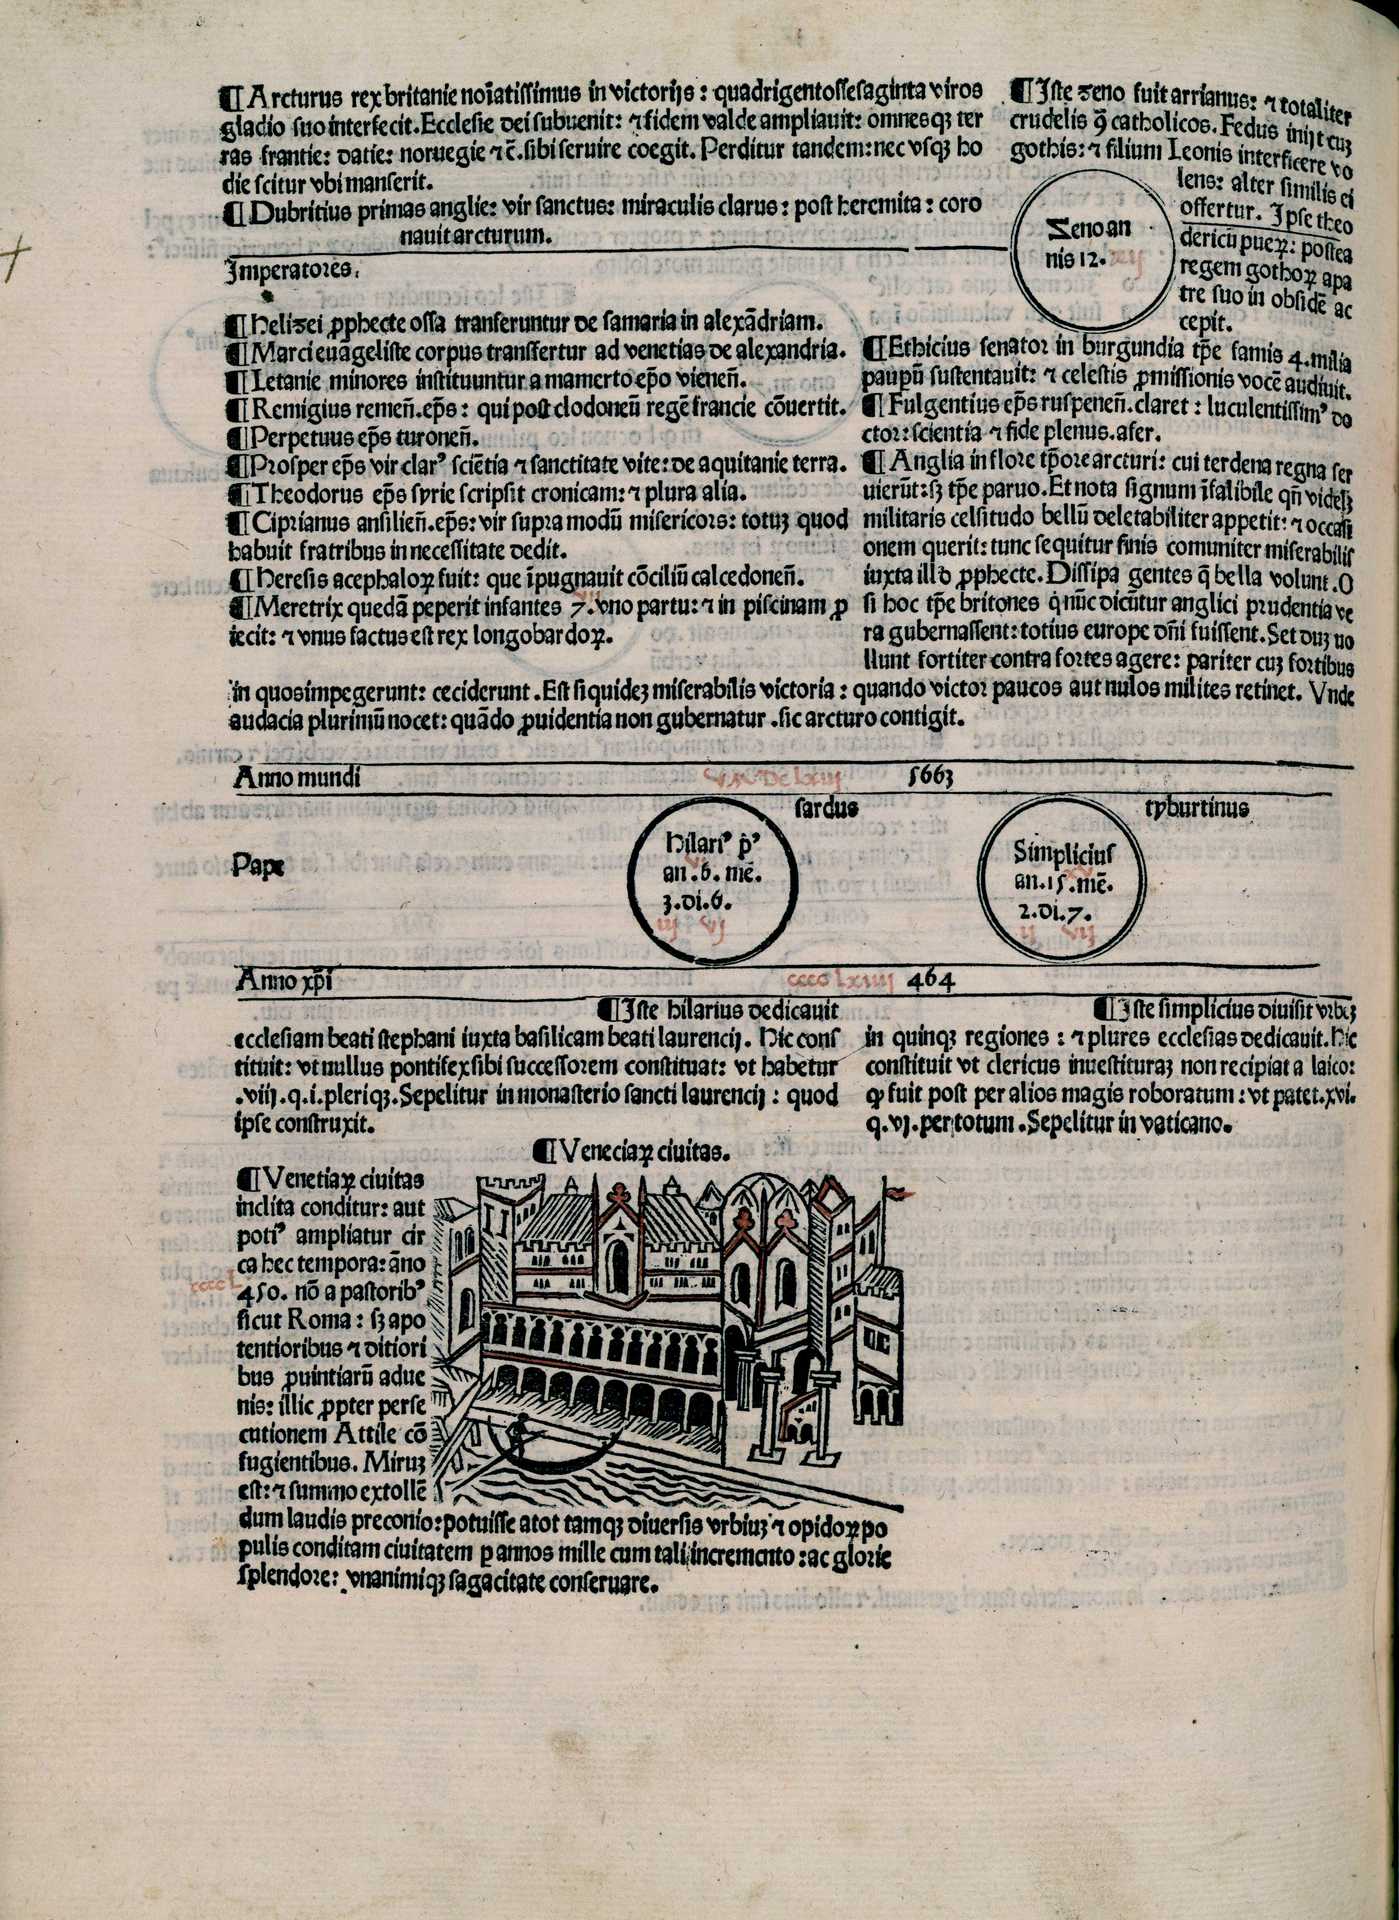 ¶Arcturus rex britanie noīatissimus in victorijs: quadrigentossesaginta viros
gladio suo interfecit. Ecclesie dei subuenit: ⁊ fidem valde ampliauit: omnesqꝫ ter
ras frantie: datie: noruegie ⁊ c̄. sibi seruire coegit. Perditur tandem: nec vsqꝫ ho
die scitur vbi manserit.
¶Dubritius primas anglie: vir sanctus: miraculis clarus: post heremita: coro
nauit arcturum.
¶Iste zeno fuit arrianus: ⁊ totaliter
crudelis ꝯ catholicos. Fedus inijt cuꝫ
gothis: ⁊ filium Leonis interficere vo
lens: alter similis ei
offertur. Ipse theo
dericū pueꝝ: postea
regem gothoꝝ a pa
tre suo in obsidē ac
cepit.
Zeno an
nis 12.
Imperatores.
¶Helizei ꝓphete ossa transferuntur de samaria in alexādriam.
¶Marci euāgeliste corpus transfertur ad venetias de alexandria.
¶Letanie minores instituuntur a mamerto ep̄o vienen̄.
¶Remigius remen̄. ep̄s: qui post clodoneū regē francie cōuertit.
¶Perpetuus ep̄s turonen̄.
¶Prosper ep̄s vir clarꝰ sciētia ⁊ sanctitate vite: de aquitanie terra.
¶Theodorus ep̄s syrie scripsit cronicam: ⁊ plura alia.
¶Ciprianus ansilien̄. ep̄s: vir supra modū misericors: totuꝫ quod
habuit fratribus in necessitate dedit.
¶Heresis acephaloꝝ fuit: que īpugnauit cōciliū calcedonen̄.
¶Meretrix quedā peperit infantes 7. vno partu: ⁊ in piscinam ꝓ
iecit: ⁊ vnus factus est rex longobardoꝝ.
¶Ethicius senator in burgundia tp̄e famis 4. milia
paupū sustentauit: ⁊ celestis ꝓmissionis vocē audiuit.
¶Fulgentius ep̄s ruspenen̄. claret: luculentissimꝰ do
ctor: scientia ⁊ fide plenus. afer.
¶Anglia in flore tp̄ore arcturi: cui ter dena regna ser
uierūt: sꝫ tp̄e paruo. Et nota signum īfalibile qn̄ videsꝫ
militaris celsitudo bellū deletabiliter appetit: ⁊ occasi
onem querit: tunc sequitur finis comuniter miserabilis
iuxta illđ ꝓphete. Dissipa gentes q̄ bella volunt. O
si hoc tp̄e britones q̇ nūc dicūtur anglici prudentia ve
ra gubernassent: totius europe dn̄i fuissent. Set duꝫ uo
llunt fortiter contra fortes agere: pariter cuꝫ fortibus
in quos impegerunt: ceciderunt. Est siquideꝫ miserabilis victoria: quando victor paucos aut nulos milites retinet. Vnde
audacia plurimū nocet: quādo ꝓuidentia non gubernatur. sic arcturo contigit.
Anno mundi 5663
sardus
tyburtinus
Pape
Hilariꝰ pꝰ
an. 6. mē.
3. di. 6.
iij vj
Simplicius
an. 15. mē.
2. di. 7.
ij vij
Anno xp̄i cccc lxiiij 464
¶Iste hilarius dedicauit
ecclesiam beati stephani iuxta basilicam beati laurencij. Hic cons
tituit: vt nullus pontifex sibi successorem constituat: vt habetur
.viij. q. i. pleriqꝫ. Sepelitur in monasterio sancti laurencij: quod
ipse construxit.
¶Iste simplicius diuisit vrbeꝫ
in quinqꝫ regiones: ⁊ plures ecclesias dedicauit. Hic
constituit vt clericus inuestituraꝫ non recipiat a laico:
ꝙ fuit post per alios magis roboratum: vt patet. xvi.
q. vj. per totum. Sepelitur in vaticano.
¶Veneciaꝝ ciuitas.
¶Venetiaꝝ ciuitas
inclita conditur: aut
potiꝰ ampliatur cir
ca hec tempora: āno
cccc L
450. nō a pastoribꝰ
sicut Roma: sꝫ a po
tentioribus ⁊ ditiori
bus ꝓuintiarū adue
nis: illic ꝓpter perse
cutionem Attile cō
fugientibus. Miruꝫ
est: ⁊ summo extollē
dum laudis preconio: potuisse a tot tamqꝫ diuersis vrbiuꝫ ⁊ opidoꝝ po
pulis conditam ciuitatem ꝑ annos mille cum tali incremento: ac glorie
splendore: vnanimiqꝫ sagacitate conseruare.